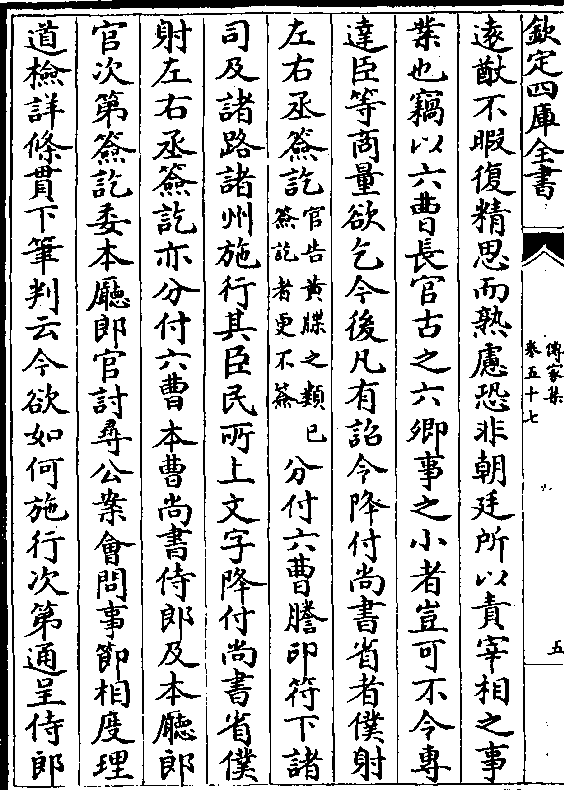 欽定四庫全書
傳家集
卷五十七
五
遠猷不暇復精思而熟慮恐非朝廷所以責宰相之事
業也竊以六曹長官古之六卿事之小者豈可不令專
達臣等商量欲乞今後凡有詔令降付尚書省者僕射
左右丞簽訖官告黃牒之類已簽訖者更不簽分付六曹謄印符下諸
司及諸路諸州施行其臣民所上文字降付尚書省僕
射左右丞簽訖亦分付六曹本曹尚書侍郎及本廳郎
官次第簽訖委本廳郎官討尋公案會問事節相度理
道檢詳條貫下筆判云今欲如何施行次第通呈侍郎